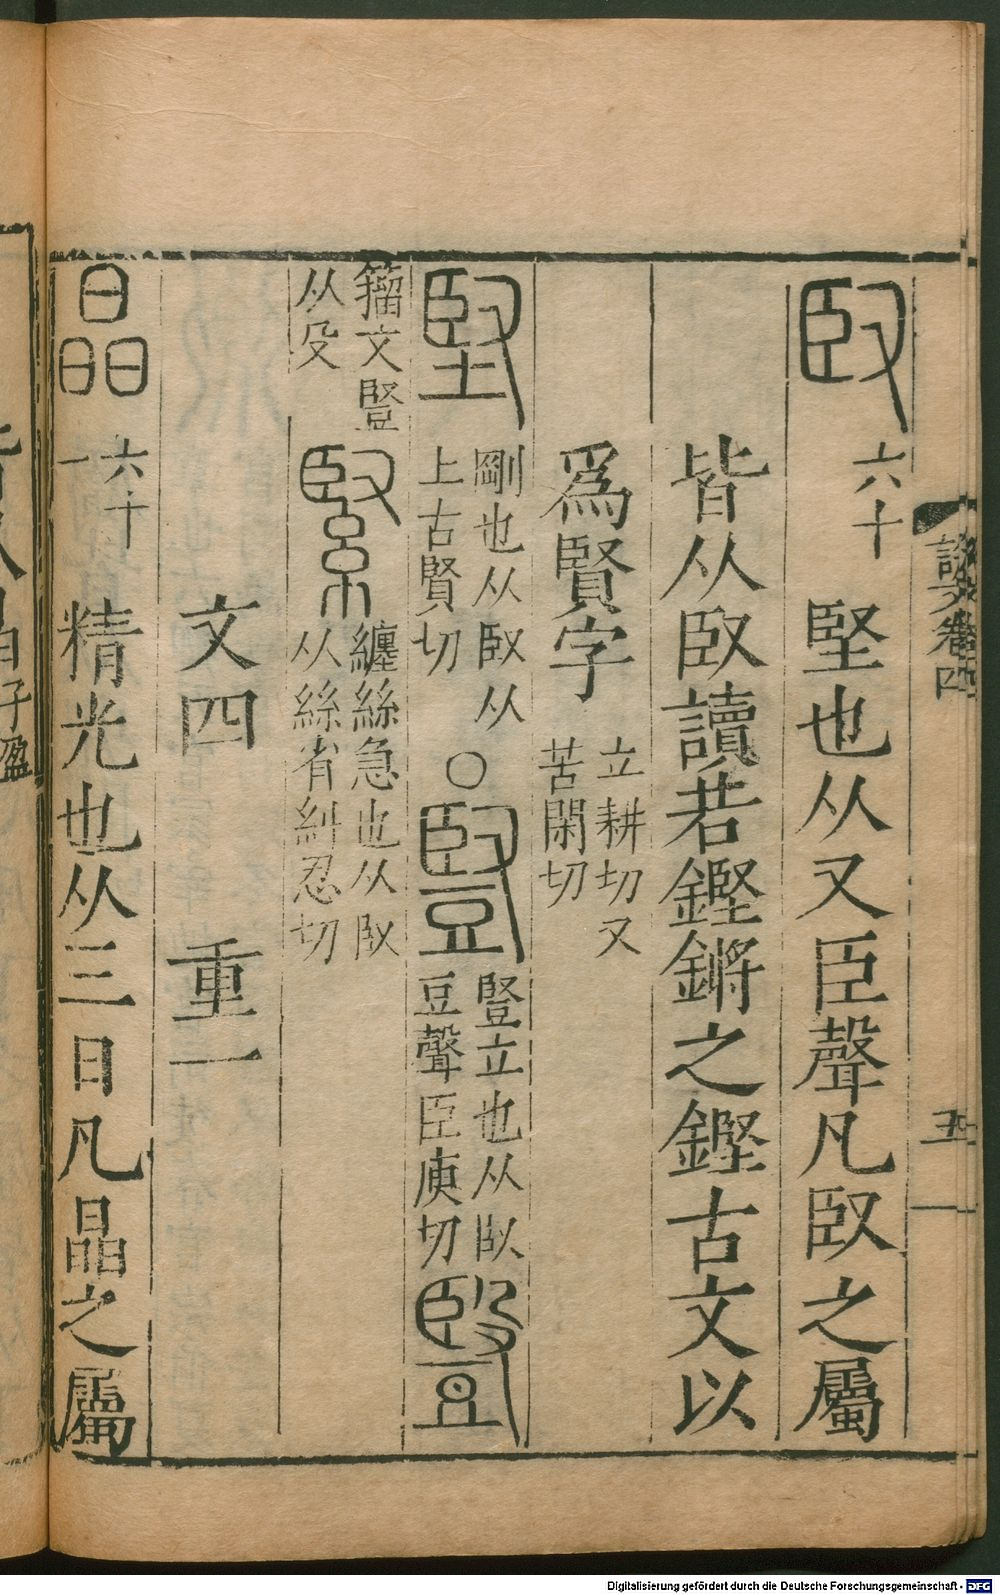 説文卷四
五
臤 六十 堅也从又臣聲凡臤之屬
皆从臤讀若鏗鏘之鏗古文以
爲賢字 立耕切又
苦閑切
堅 剛也从臤从
上古賢切
○豎 豎立也从臤
豆聲臣庾切
籀文豎
从殳
緊 纏絲急也从臤
从絲省糾忍切
文四 重一
晶 六十
一 精光也从三日凡晶之屬
Digitalisierung gefördert durch die Deutsche Forschungsgemeinschaft - DFG